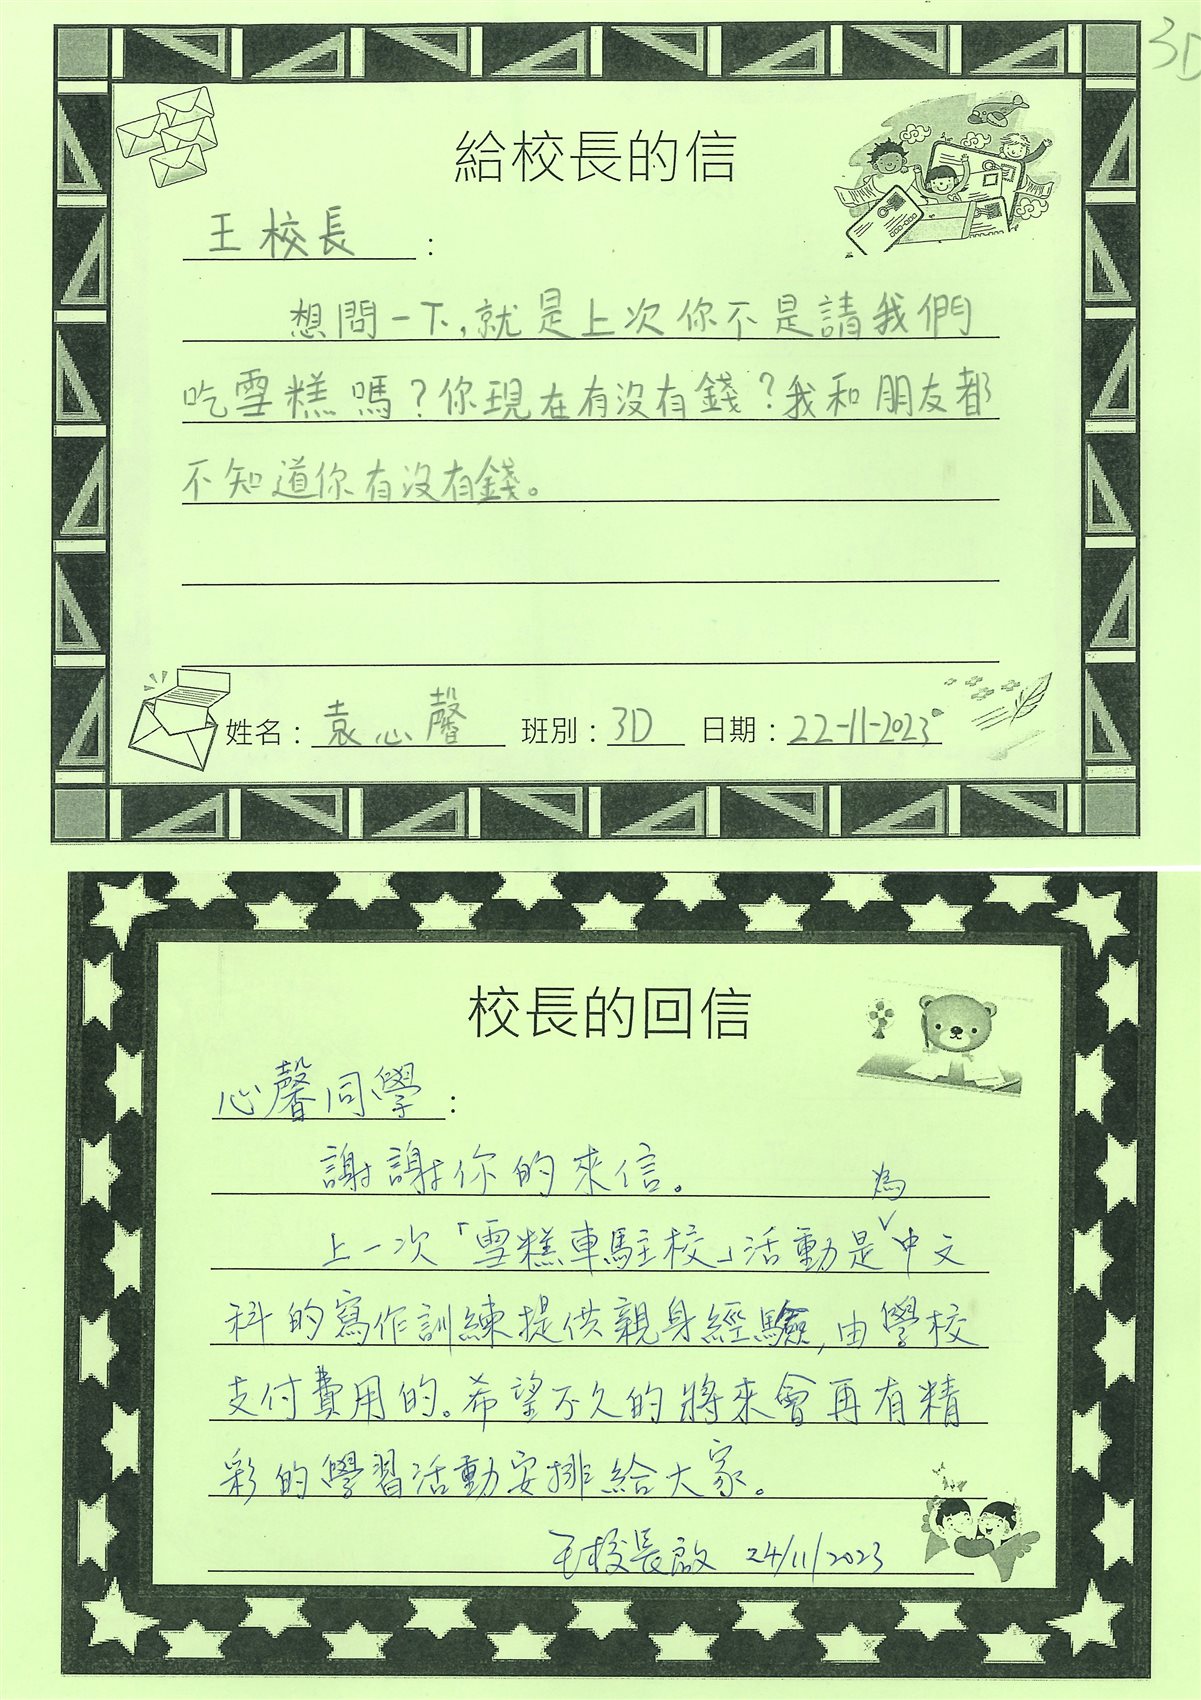 3D
給校長的信
王校長：
想問一下，就是上次你不是請我們
吃雪糕嗎？你現在有沒有錢？我和朋友都
不知道你有沒有錢。
姓名：袁心馨 班別：3D 日期：22-11-2023
校長的回信
心馨同學：
謝謝你的來信。
上一次「雪糕車駐校」活動是為中文
科的寫作訓練提供親身經驗，由學校
支付費用的。希望不久的將來會再有精
彩的學習活動安排給大家。
王校長啟 24/11/2023